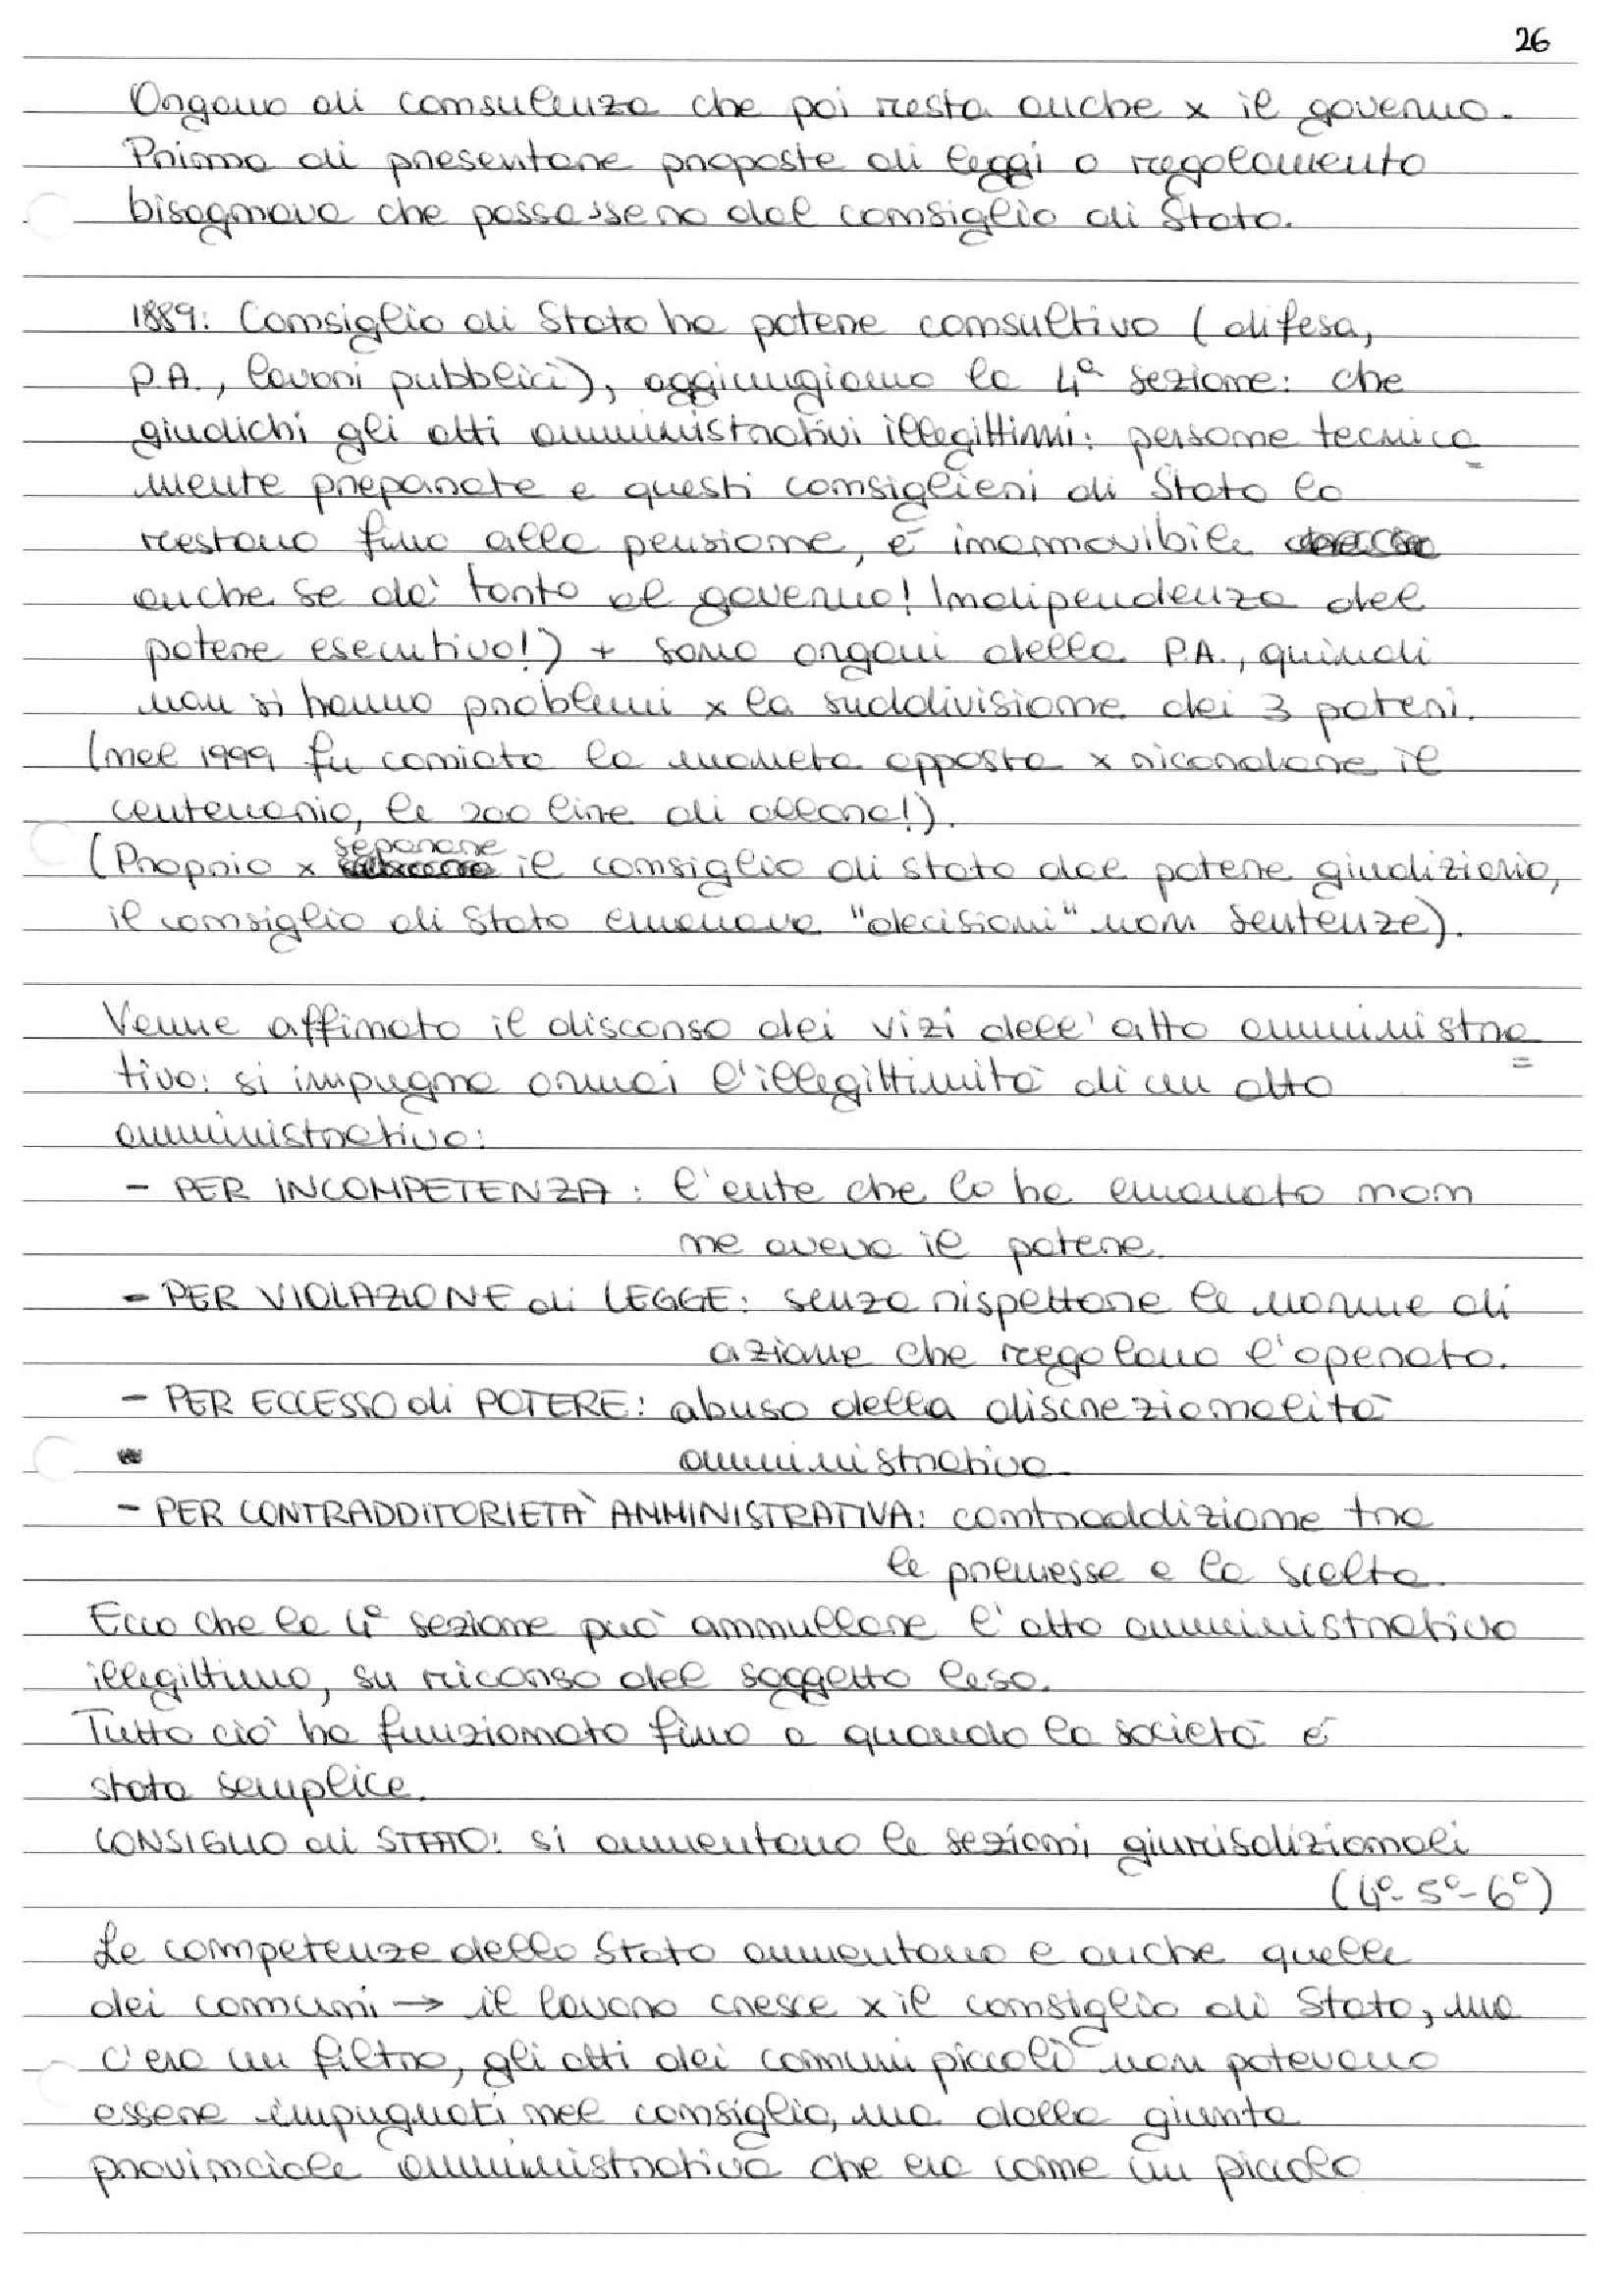 26
Organo di consulenza che poi resta anche x il governo.
Prima di presentare proposte di leggi o regolamento
bisognava che passassero dal consiglio di Stato.
1889: Consiglio di Stato ha potere consultivo (difesa,
P.A., lavori pubblici), aggiungiamo la 4ª sezione: che
giudichi gli atti amministrativi illegittimi: persone tecnica=
mente preparate e questi consiglieri di Stato lo
restano fino alla pensione, é inammovibile
anche se dà torto al governo! Indipendenza del
potere esecutivo!) + sono organi della P.A., quindi
non si hanno problemi x la suddivisione dei 3 poteri.
(nel 1999 fu coniata la moneta apposta x ricordare il
centenario, le 200 lire di allora!).
(Proprio x separare il consiglio di stato dal potere giudiziario,
il consiglio di Stato emanava "decisioni" non sentenze).
Venne affinato il discorso dei vizi dell'atto amministra=
tivo: si impugna ormai l'illegittimità di un atto
amministrativo:
- PER INCOMPETENZA: l'ente che lo ha emanato non
ne aveva il potere.
- PER VIOLAZIONE di LEGGE: senza rispettare le norme di
azione che regolano l'operato.
- PER ECCESSO di POTERE: abuso della discrezionalità
amministrativa.
- PER CONTRADDITORIETÀ AMMINISTRATIVA: contraddizione tra
le premesse e la scelta.
Ecco che la 4ª sezione può annullare l'atto amministrativo
illegittimo, su ricorso del soggetto leso.
Tutto ciò ha funzionato fino a quando la società é
stata semplice.
CONSIGLIO di STATO: si aumentano le sezioni giurisdizionali
(4ª-5ª-6ª)
Le competenze dello Stato aumentano e anche quelle
dei comuni → il lavoro cresce x il consiglio di Stato, ma
c'era un filtro, gli atti dei comuni piccoli non potevano
essere impugnati nel consiglio, ma dalla giunta
provinciale amministrativa che era come un piccolo